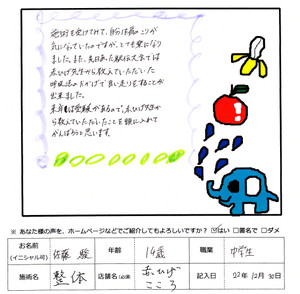 施術を受けてみて、自分は肩こりが
気になっていたのですが、とても楽になり
ました。また、先日あった駅伝大会では
赤ひげ先生から教えていただいた
呼吸法のおかげで良い走りをすることが
出来ました。
来年は受験があるので、赤ひげ先生か
ら教えていただいたことを頭に入れて
がんばろうと思います。
※ あなた様の声を、ホームページなどでご紹介してもよろしいですか?☑はい □匿名で □ダメ
お名前 佐藤 駿 年齢 14歳 職業 中学生
(イニシャル可)
施術名 整体 店舗名(必須) 赤ひげ こころ 記入日 22年12月30日